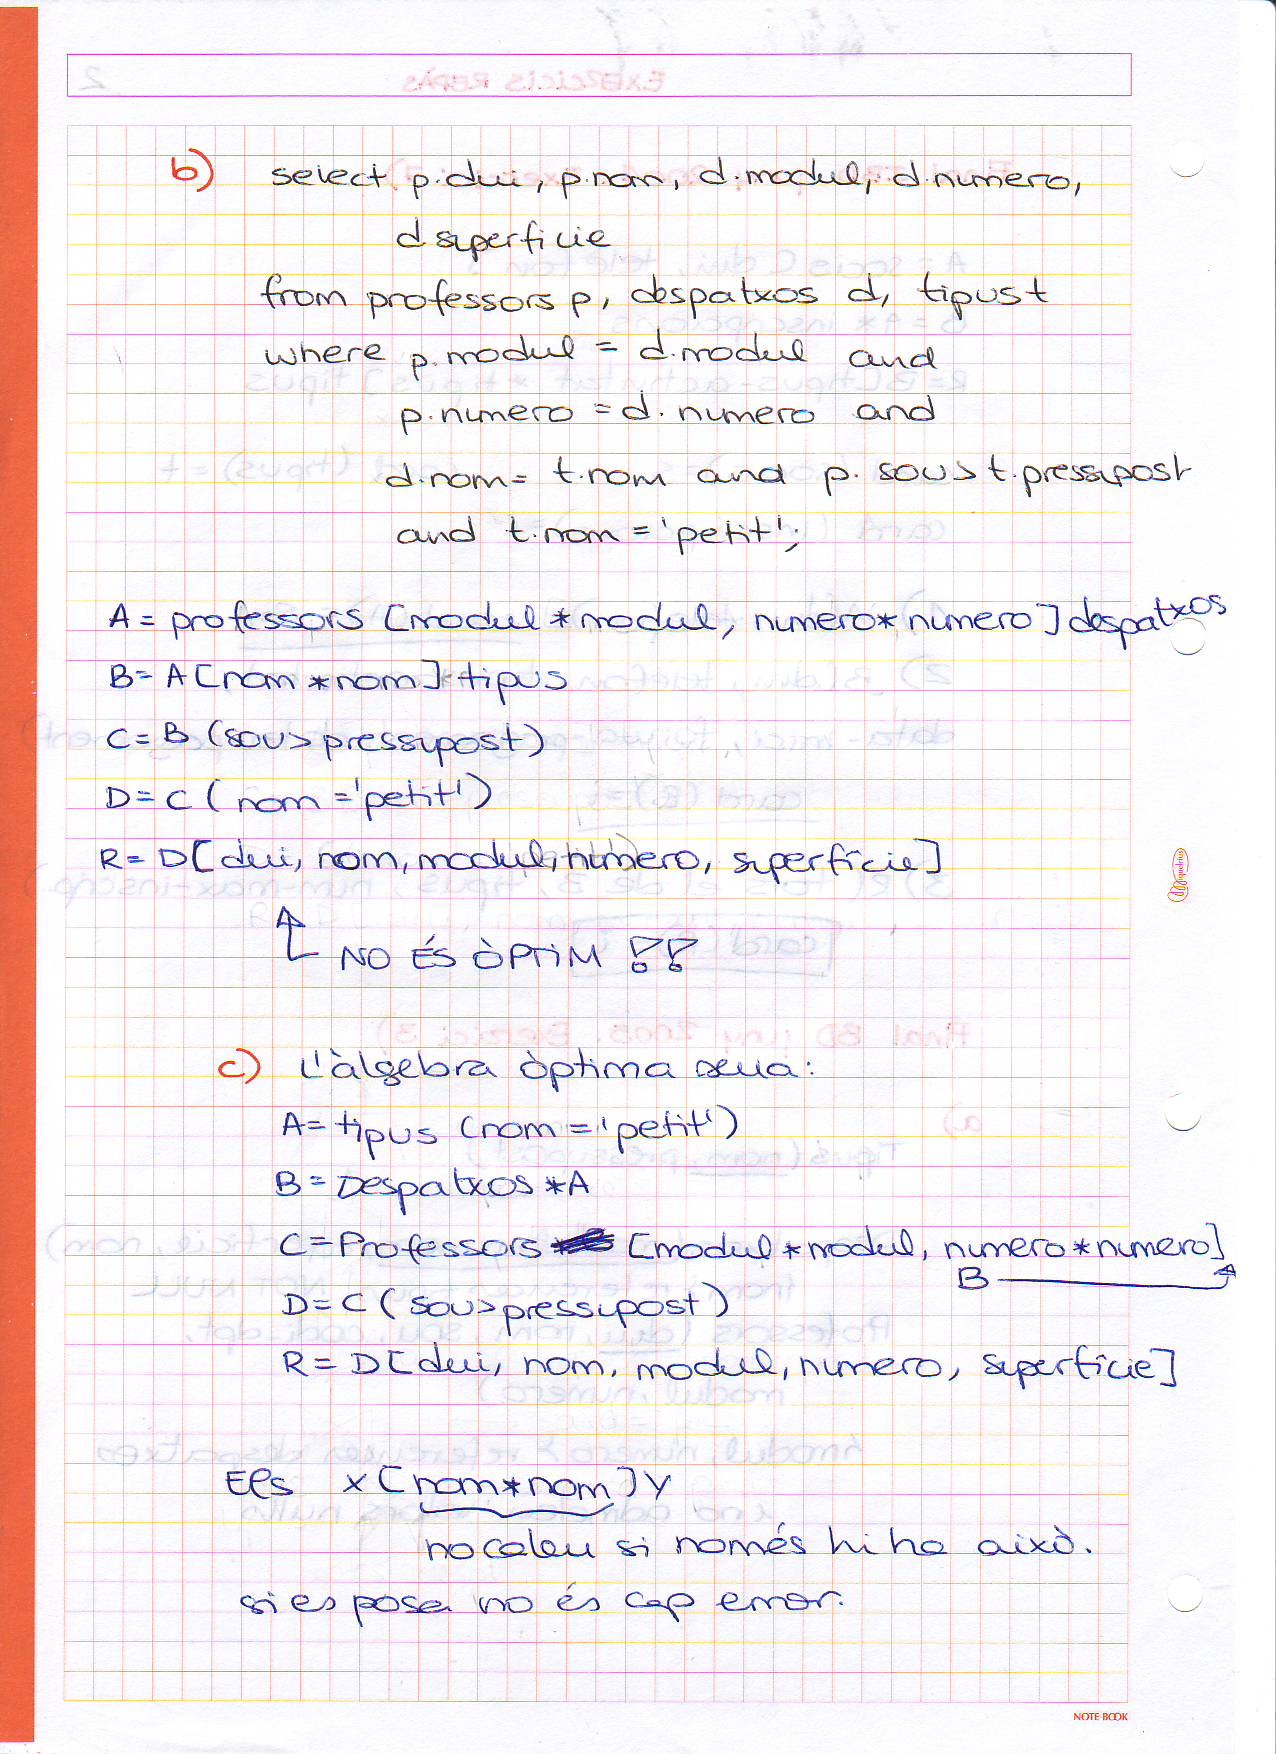 b) select p.dni, p.nom, d.modul, d.numero,
d superficie
from professors p, despatxos d, tipus t
where p.modul = d.modul and
p.numero = d.numero and
d.nom = t.nom and p.sou > t.pressupost
and t.nom = 'petit';
A = professors [modul * modul, numero * numero] despatxos
B = A [nom * nom] tipus
C = B (sou > pressupost)
D = C (nom = 'petit')
R = D [dni, nom, modul, número, superfície]
NO ÉS ÒPTIM !!
c) L'àlgebra òptima seria:
A = tipus (nom = 'petit')
B = Despatxos * A
C = Professors [modul * modul, numero * numero]
B
D = C (sou > pressupost)
R = D [dni, nom, modul, numero, superfície]
Els X [nom * nom] Y
no caleu si només hi ha això.
si es posa no és cap error.
miquelrius
NOTE BOOK